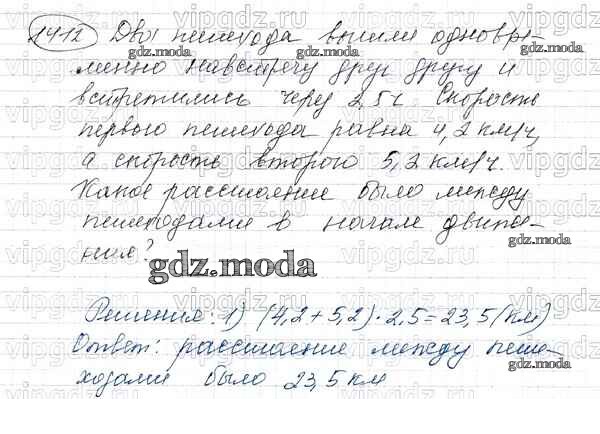 1412 Два пешехода вышли одновре-
менно навстречу друг другу и
встретились через 2,5ч Скорость
первого пешехода равна 4,2 км/ч,
а скорость второго 5,2 км/ч.
Какое расстояние было между
пешеходами в начале движе-
ния?
gdz.moda
Решение: 1) (4,2 + 5,2) · 2,5 = 23,5 (км)
Ответ: расстояние между пеше-
ходами было 23,5 км